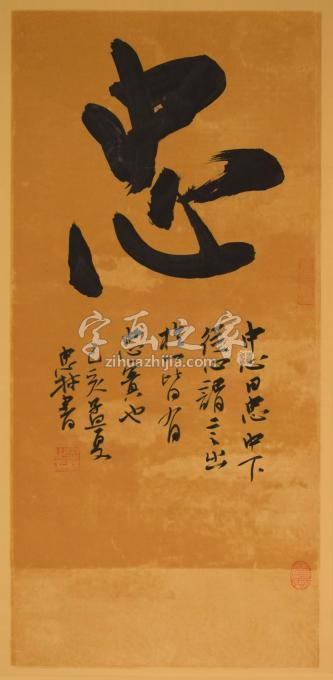 忠
中心曰忠中下
從心謂言出
於心皆有
忠實也
己亥孟夏
書
字画之家
zihuazhijia.com